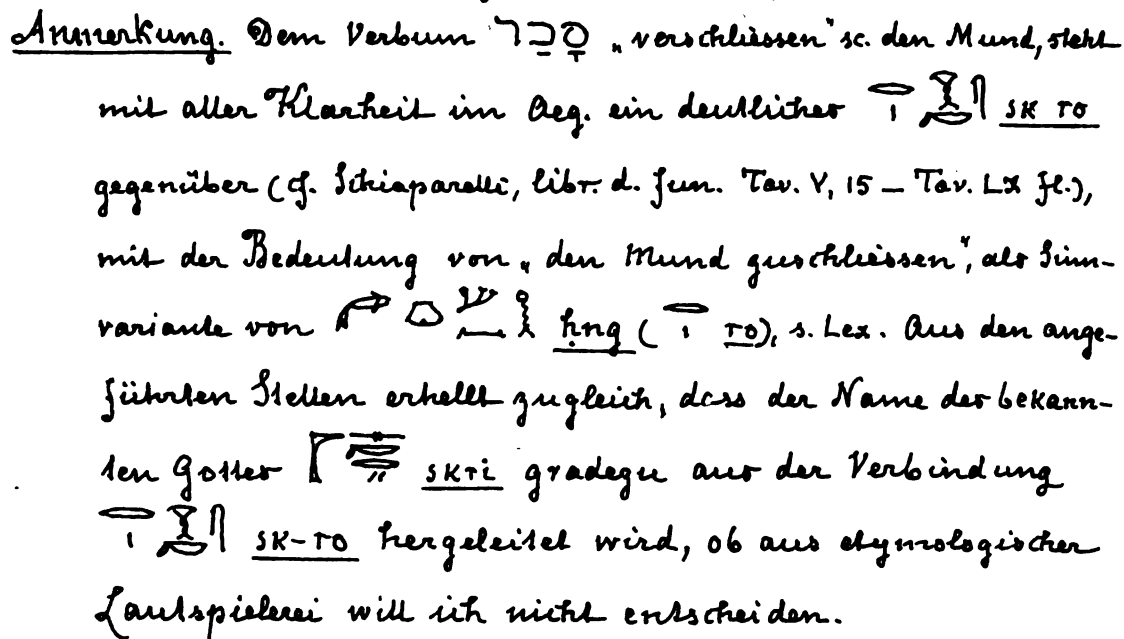 Anmerkung. Dem Verbum סָכַר „verschliessen" sc. den Mund, steht
mit aller Klarheit im Aeg. ein deutliches sk ro
gegenüber (cf. Schiaparelli, libr. d. fun. Tav. V, 15 – Tav. LX fl.),
mit der Bedeutung von „den Mund zuschliessen", als Sinn-
variante von ḥng ( ro), s. Lex. Aus den ange-
führten Stellen erhellt zugleich, dass der Name des bekann-
ten Gottes skri gradezu aus der Verbindung
sk-ro hergeleitet wird, ob aus etymologischer
Lautspielerei will ich nicht entscheiden.